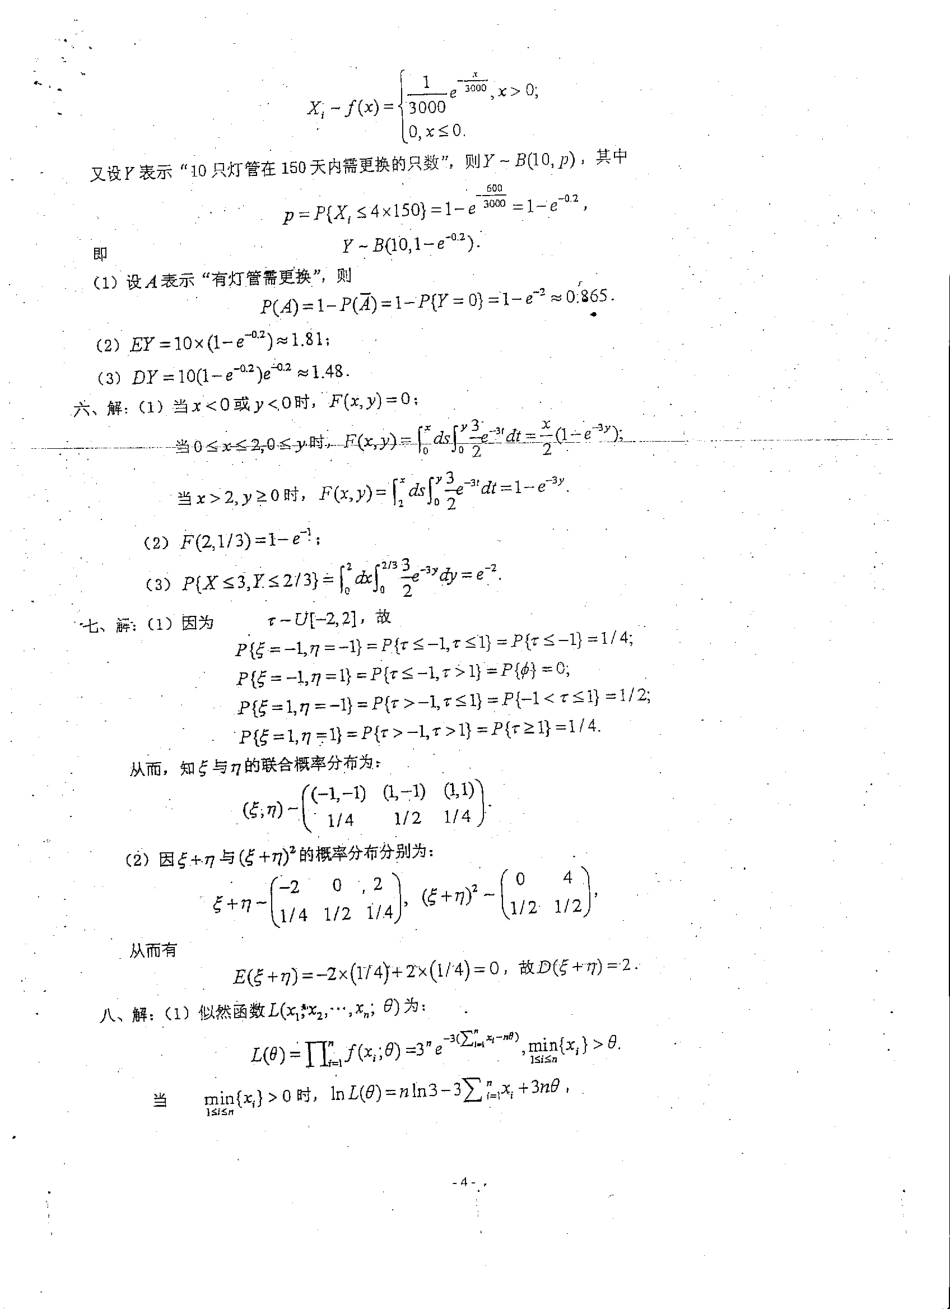 X_i ~ f(x) = { 1/3000 e^{-x/3000}, x > 0;
0, x ≤ 0.
又设Y表示“10只灯管在150天内需更换的只数”，则Y ~ B(10, p)，其中
p = P{X_i ≤ 4×150} = 1-e^{-600/3000} = 1-e^{-0.2},
即 Y ~ B(10,1-e^{-0.2}).
（1）设A表示“有灯管需更换”，则
P(A)=1-P(A̅)=1-P{Y=0}=1-e^{-2}≈0.865.
（2）EY=10×(1-e^{-0.2})≈1.81;
（3）DY=10(1-e^{-0.2})e^{-0.2}≈1.48.
六、解:（1）当x<0或y<0时，F(x,y)=0;
当0≤x≤2,0≤y时，F(x,y)=∫_0^x ds∫_0^y 3/2 e^{-3t}dt=x/2(1-e^{-3y});
当x>2,y≥0时，F(x,y)=∫_2^x ds∫_0^y 3/2 e^{-3t}dt=1-e^{-3y}.
（2）F(2,1/3)=1-e^{-1};
（3）P{X≤3,Y≤2/3}=∫_0^2 dx∫_0^{2/3} 3/2 e^{-3y}dy=e^{-2}.
七、解:（1）因为 τ~U[-2,2]，故
P{ξ=-1,η=-1}=P{τ≤-1,τ≤1}=P{τ≤-1}=1/4;
P{ξ=-1,η=1}=P{τ≤-1,τ>1}=P{ϕ}=0;
P{ξ=1,η=-1}=P{τ>-1,τ≤1}=P{-1<τ≤1}=1/2;
P{ξ=1,η=1}=P{τ>-1,τ>1}=P{τ≥1}=1/4.
从而，知ξ与η的联合概率分布为:
(ξ,η)~( (-1,-1) (1,-1) (1,1)
1/4 1/2 1/4 ).
（2）因ξ+η与(ξ+η)²的概率分布分别为:
ξ+η~( -2 0 2 ; 1/4 1/2 1/4 ), (ξ+η)²~( 0 4 ; 1/2 1/2 ),
从而有
E(ξ+η)=-2×(1/4)+2×(1/4)=0，故D(ξ+η)=2.
八、解:（1）似然函数L(x_1,x_2,⋯,x_n; θ)为:
L(θ)=∏_{i=1}^n f(x_i;θ)=3^n e^{-3(∑_{i=1}^n x_i-nθ)}, min_{1≤i≤n}{x_i}>θ.
当 min_{1≤i≤n}{x_i}>0时，ln L(θ)=n ln3-3∑_{i=1}^n x_i+3nθ，
-4-